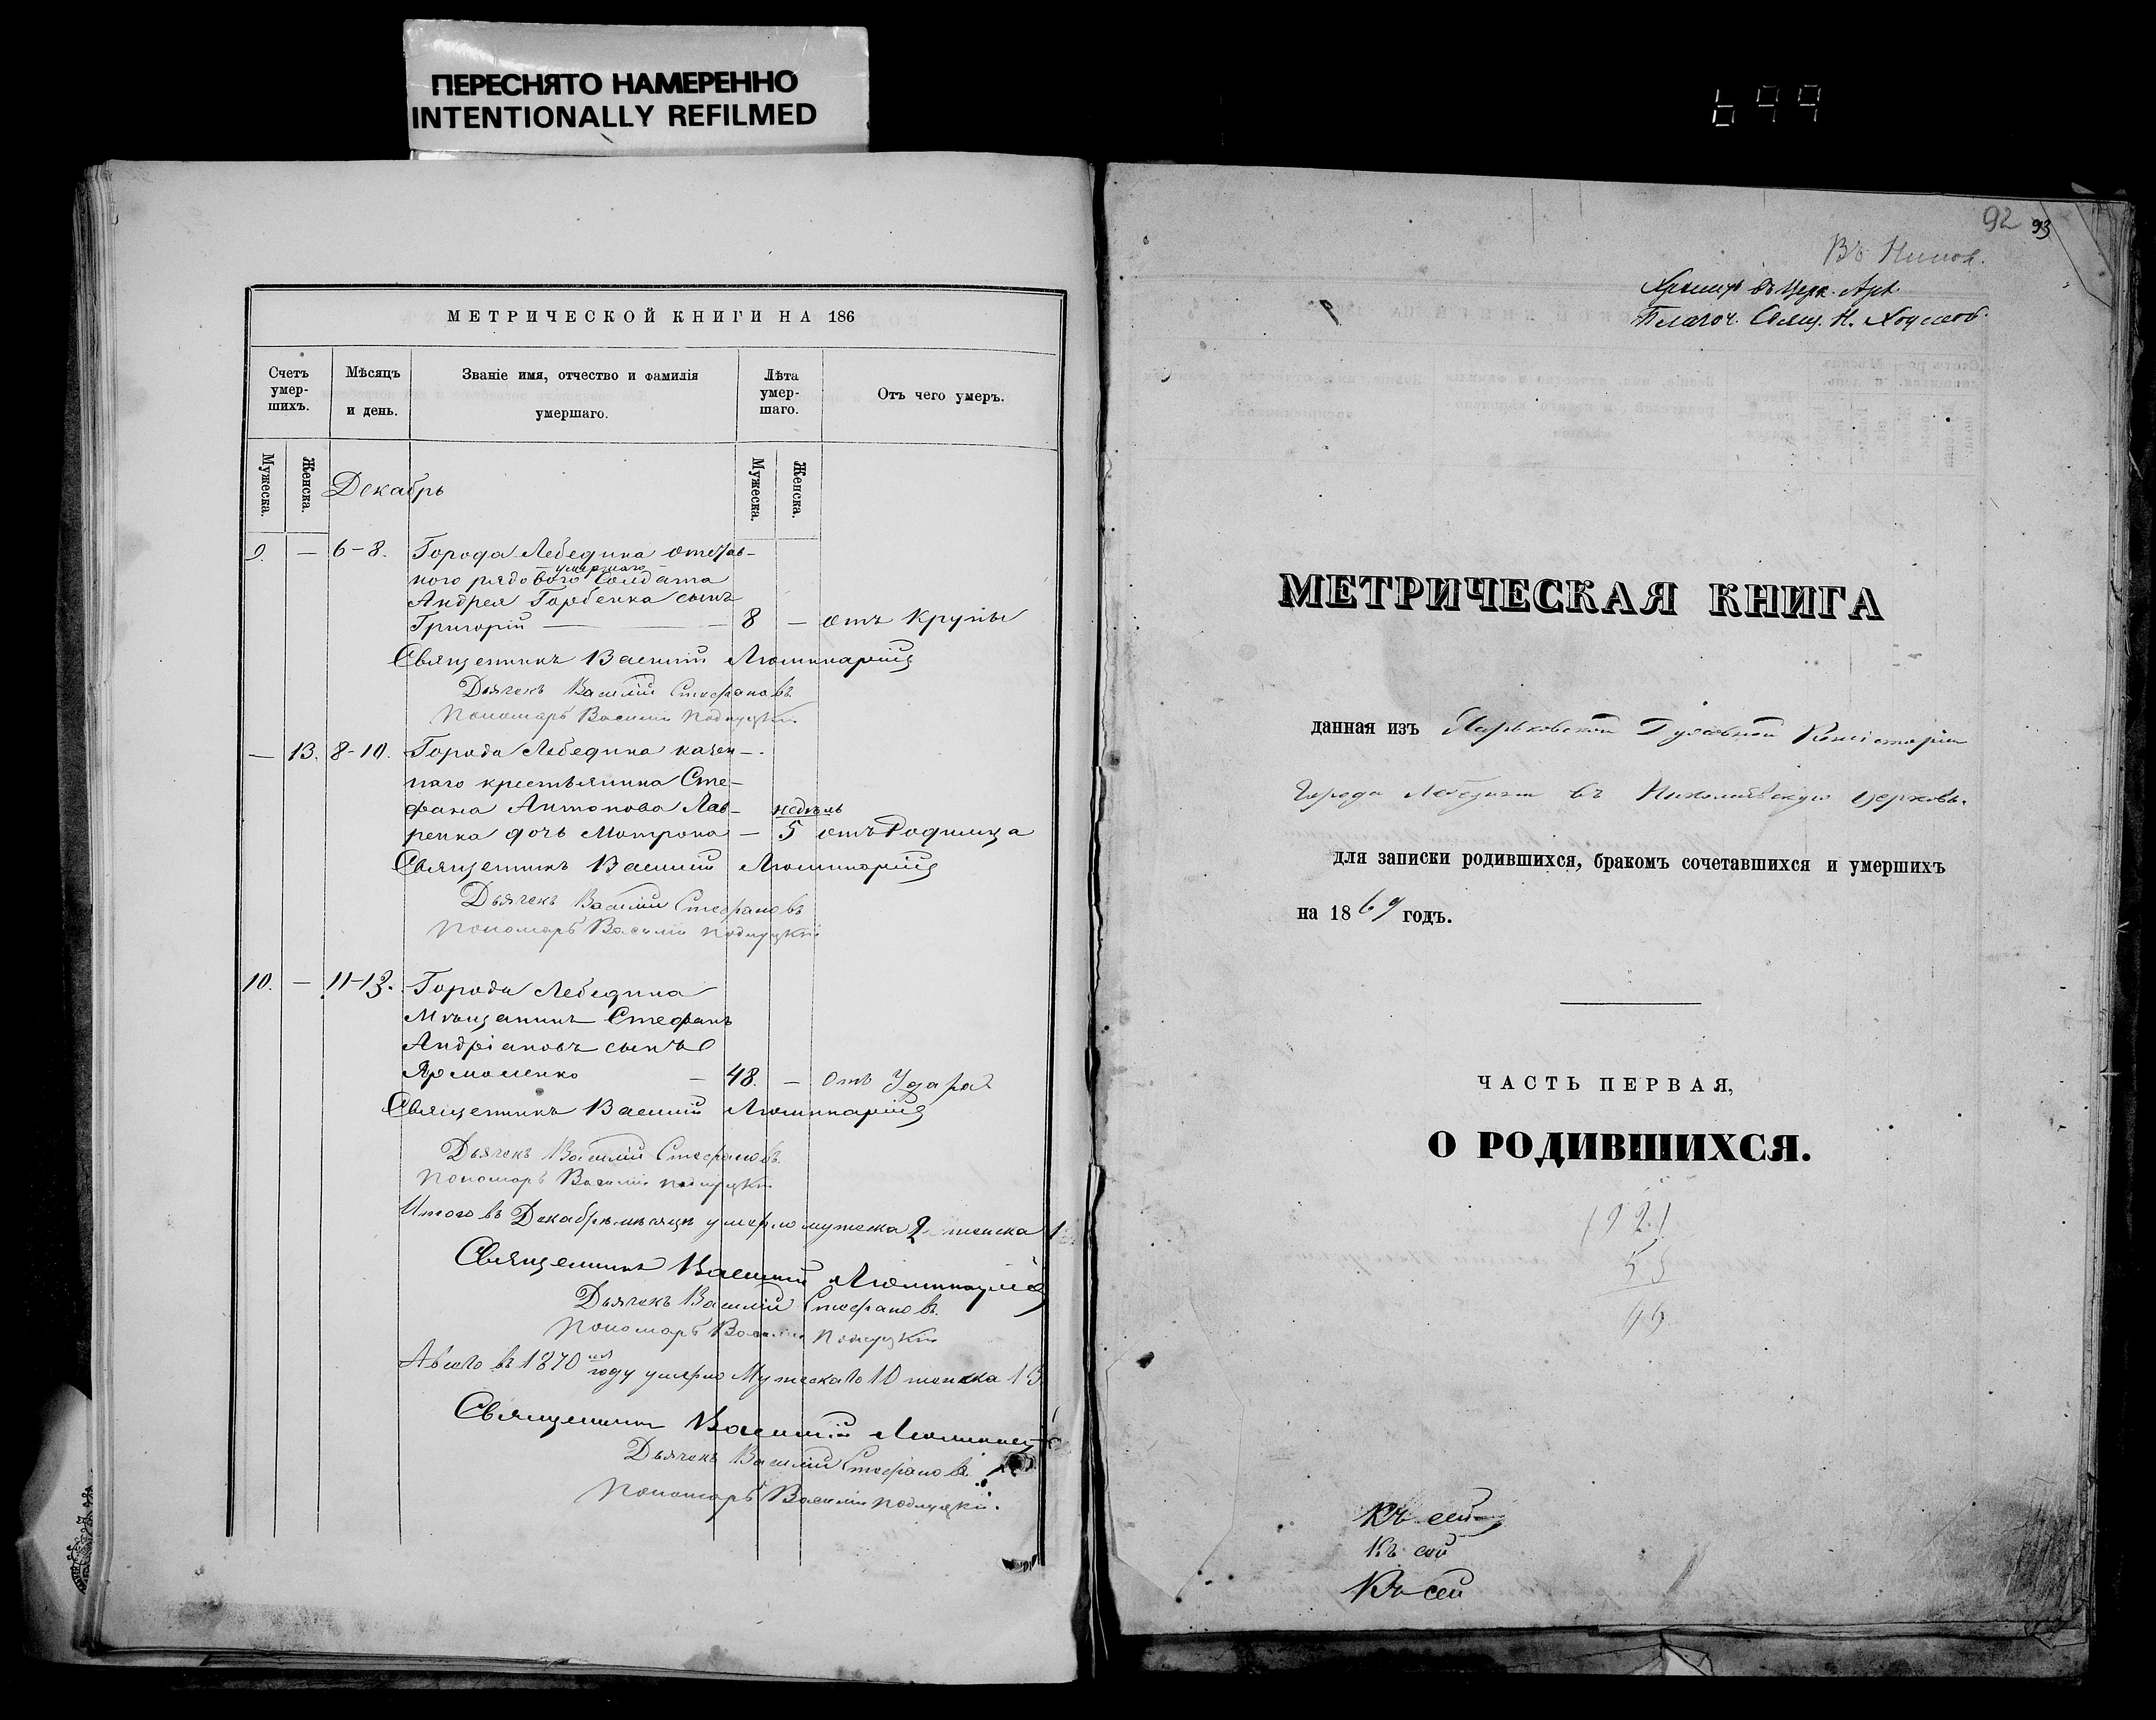 ПЕРЕСНЯТО НАМЕРЕННО
INTENTIONALLY REFILMED
699
МЕТРИЧЕСКОЙ КНИГИ НА 186
Счетъ умер-шихъ.
Мѣсяцъ и день.
Званіе имя, отчество и фамилія умершаго.
Лѣта умер-шаго.
Отъ чего умеръ.
Мужеска.
Женска.
Мужеска.
Женска.
Декабрь
9. — 6-8. Города Лебедина отстав-
умершаго
ного рядового Солдата
Андрея Горбенка сынъ
Григорій — 8 — отъ Крупы
Священникъ Василій
Дьячекъ Василій Стефановъ
Пономарь Василій
— 13. 8-10. Города Лебедина казен-
наго крестьянина Сте-
фана Антонова Лав-
недѣль
ренка дочь Мотрона — 5 отъ Родимца
Священникъ Василій
Дьячекъ Василій Стефановъ
Пономарь Василій
10. — 11-13. Города Лебедина
Мѣщанинъ Стефанъ
Андріановъ сынъ
Ярмоленко — 48. — отъ Удара
Священникъ Василій
Дьячекъ Василій Стефановъ
Пономарь Василій
Итого въ Декабрѣ мѣсяцѣ умерло мужеска 2 женска 1
Священникъ Василій
Дьячекъ Василій Стефановъ
Пономарь Василій
А всего въ 1870 году умерло Мужеска 10 женска 13
Священникъ Василій
Дьячекъ Василій Стефановъ
Пономарь Василій
92 93
МЕТРИЧЕСКАЯ КНИГА
данная изъ Харьковской Духовной Консисторіи
Города Лебедина въ Николаевскую церковь.
для записки родившихся, бракомъ сочетавшихся и умершихъ
на 1869 годъ.
ЧАСТЬ ПЕРВАЯ,
О РОДИВШИХСЯ.
Къ сей
Къ сей
Къ сей